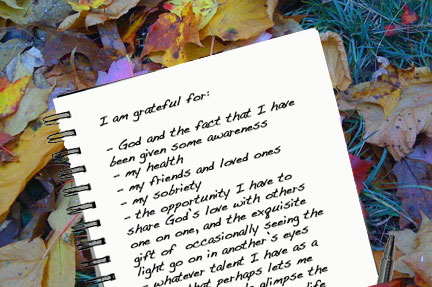 I am grateful for:
- God and the fact that I have
been given some awareness
- my health
- my friends and loved ones
- my sobriety
- the opportunity I have to
share God's love with others
one on one, and the exquisite
gift of occasionally seeing the
light go on in another's eyes
- whatever talent I have as a
that perhaps lets me
glimpse the
life